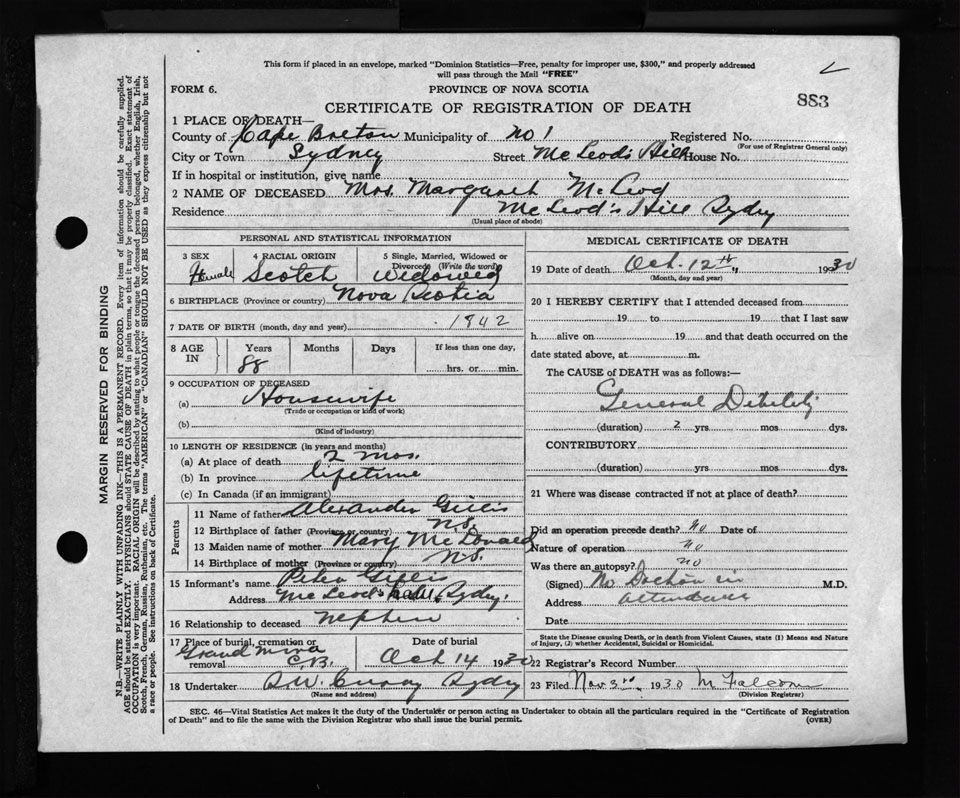 This form if placed in an envelope, marked "Dominion Statistics—Free, penalty for improper use, $300," and properly addressed
will pass through the Mail "FREE"
FORM 6.
PROVINCE OF NOVA SCOTIA
CERTIFICATE OF REGISTRATION OF DEATH
883
1 PLACE OF DEATH—
County of Cape Breton Municipality of No 1 Registered No.
(For use of Registrar General only)
City or Town Sydney Street McLeod's Hill House No.
If in hospital or institution, give name
2 NAME OF DECEASED Mrs. Margaret McLeod
Residence McLeod's Hill Sydney
(Usual place of abode)
PERSONAL AND STATISTICAL INFORMATION
3 SEX 4 RACIAL ORIGIN 5 Single, Married, Widowed or
Divorced (Write the word)
Female Scotch Widowed
6 BIRTHPLACE (Province or country) Nova Scotia
7 DATE OF BIRTH (month, day and year) 1842
8 AGE IN Years Months Days If less than one day,
88 hrs. or min.
9 OCCUPATION OF DECEASED
(a) Housewife
(Trade or occupation or kind of work)
(b)
(Kind of industry)
10 LENGTH OF RESIDENCE (in years and months)
(a) At place of death 2 mos.
(b) In province lifetime
(c) In Canada (if an immigrant)
Parents
11 Name of father Alexander Gillis
12 Birthplace of father (Province or country) N.S.
13 Maiden name of mother Mary McDonald
14 Birthplace of mother (Province or country) N.S.
15 Informant's name Peter Gillis
Address McLeod's Hill, Sydney.
16 Relationship to deceased Nephew
17 Place of burial, cremation or removal Grand Mira C.B.
Date of burial Oct 14 1930
18 Undertaker Sydney
(Name and address)
MEDICAL CERTIFICATE OF DEATH
19 Date of death Oct. 12th 1930
(Month, day and year)
20 I HEREBY CERTIFY that I attended deceased from
19 to 19 that I last saw
h alive on 19 and that death occurred on the
date stated above, at m.
The CAUSE of DEATH was as follows:—
General Debility
(duration) 2 yrs. mos. dys.
CONTRIBUTORY
(duration) yrs. mos. dys.
21 Where was disease contracted if not at place of death?
Did an operation precede death? No Date of
Nature of operation No
Was there an autopsy? No
(Signed) No Doctor in M.D.
Address attendance
Date
State the Disease causing Death, or in death from Violent Causes, state (1) Means and Nature
of Injury, (2) whether Accidental, Suicidal or Homicidal.
22 Registrar's Record Number
23 Filed Nov 3rd, 1930
(Division Registrar)
SEC. 46—Vital Statistics Act makes it the duty of the Undertaker or person acting as Undertaker to obtain all the particulars required in the "Certificate of Registration
of Death" and to file the same with the Division Registrar who shall issue the burial permit.
(OVER)
MARGIN RESERVED FOR BINDING
N.B.—WRITE PLAINLY WITH UNFADING INK—THIS IS A PERMANENT RECORD. Every item of information should be carefully supplied.
AGE should be stated EXACTLY. PHYSICIANS should STATE CAUSE OF DEATH in plain terms, so that it may be properly classified. Exact statement of
OCCUPATION is very important. RACIAL ORIGIN will be described by stating to what people or tongue the deceased person belonged, whether English, Irish,
Scotch, French, German, Russian, Ruthenian, etc. The terms "AMERICAN" or "CANADIAN" SHOULD NOT BE USED as they express citizenship but not
a race or people. See instructions on back of Certificate.